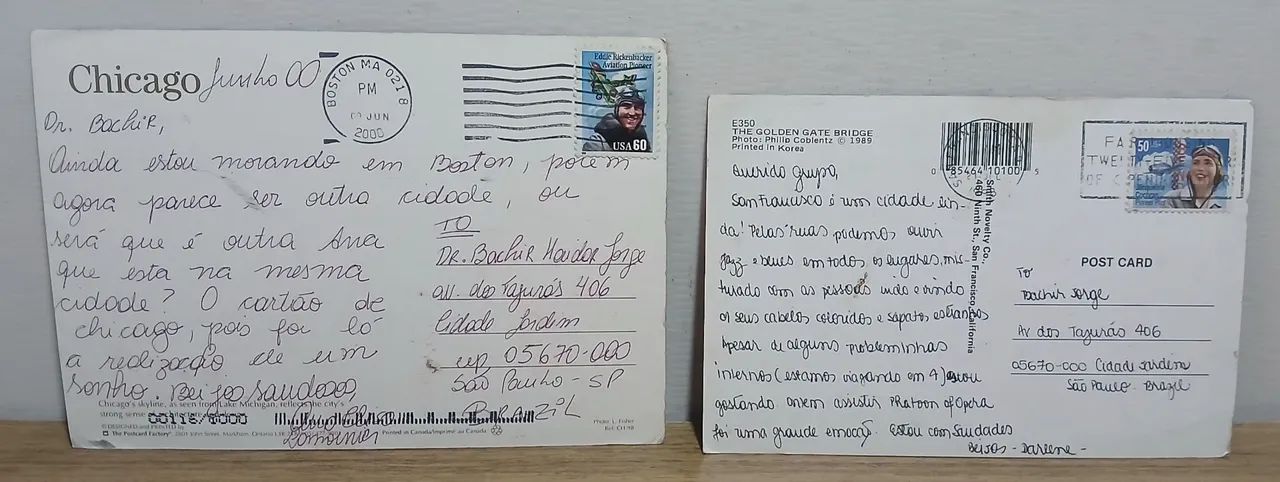 Chicago Junho 00
BOSTON MA 021 8
PM
JUN
2000
Eddie Rickenbacker
Aviation Pioneer
USA 60
Dr. Bachir,
Ainda estou morando em Boston, porém
agora parece ser outra cidade, ou
será que é outra Ana
que esta na mesma
cidade? O cartão de
chicago, pois foi lá
a realização de um
sonho. Beijos saudosos,
TO
Dr. Bachir Haidar Jorge
av. dos Tajurás 406
Cidade Jardim
cep 05670-000
São Paulo - SP
BRAZIL
Chicago's skyline, as seen from Lake Michigan, reflects the city's
strong sense
© DESIGNED and PRINTED by
The Postcard Factory
Markham, Ontario
Printed in Canada/Imprimé au Canada
Photo: L. Fisher
E350
THE GOLDEN GATE BRIDGE
Photo: Philip Coblentz © 1989
Printed in Korea
0 85464 10100 5
Smith Novelty Co.,
460 Ninth St., San Francisco, California
50
Querido grupo,
San Francisco é uma cidade lin-
da! Pelas ruas podemos ouvir
jazz e blues em todos os lugares, mis-
turado com as pessoas indo e vindo
os seus cabelos coloridos e sapatos estranhos
Apesar de alguns probleminhas
internos (estamos viajando em 4) estou
gostando. ontem assistir Phatoon of Opera
foi uma grande emoção. Estou com saudades
Beijos - Darlene -
POST CARD
To
Bachir Jorge
Av dos Tajurás 406
05670-000 Cidade Jardim
São Paulo - Brazil